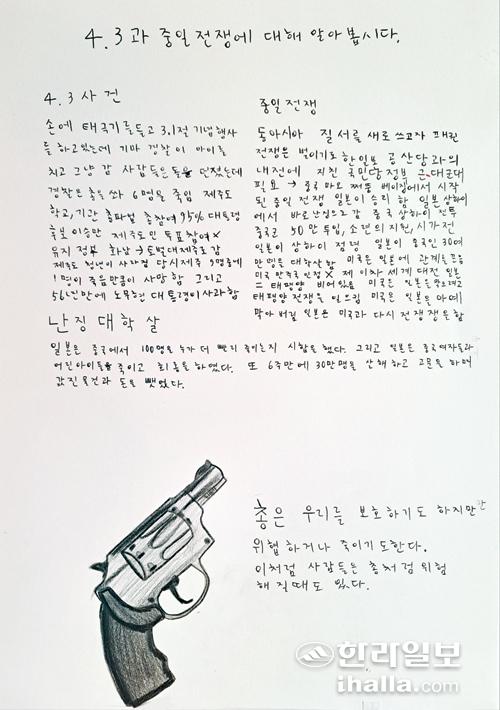 4.3과 중일전쟁에 대해 알아봅시다.
4.3사건
손에 태극기를들고 3.1절 기념행사
를 하고있는데 기마 경찰이 아이를
치고 그냥 감 사람들은 돌을 던졌는데
경찰은 총을 쏴 6명을 죽임 제주도
학교,기관 총파업 총참여 95% 대통령
후보 이승만 제주도민 투표참여×
유지 정부 화남 → 토벌대제주로감
제주도 청년이 사라짐 당시제주 9명중에
1명이 죽음만큼이 사망함 그리고
56년만에 노무현 대통령이사과함
중일전쟁
동아시아 질서를 새로 쓰고자 패권
전쟁은 벌이기도 한일본 공산당과의
내전에 지친 국민당정부 근대군대
필요 → 중국 마오쩌뚱 베이징에서 시작
된 중일 전쟁 일본이 승리 함 일본 상하이
에서 바로난징으로감 중국 상하이 전투
중국군 50만 투입, 소련의 지원, 시가전
일본이 상하이 점령 일본이 중국인 30여
만명을 대학살함 미국은 일본에 관계를끊음
미국 만주국 인정× 제 이차 세계 대전 일본
= 태평양 비어있음 미국은 일본을막으려고
태평양 전쟁을 일으킴 미국은 일본은 아예
막아 버림 일본은 미국과 다시 전쟁을함
난징대학살
일본은 중국에서 100명을 누가 더 빨리 죽이는지 시합을 했다. 그리고 일본은 중국여자들과
어린아이들을 죽이고 희롱을 하였다. 또 6주만에 30만명을 살해 하고 고문을 하며
값진 물건과 돈을 뺏었다.
총은 우리를 보호하기도 하지만
위협하거나 죽이기도한다.
이처럼 사람들은 총처럼 위험
해 질때도 있다.
한라일보
ihalla.com